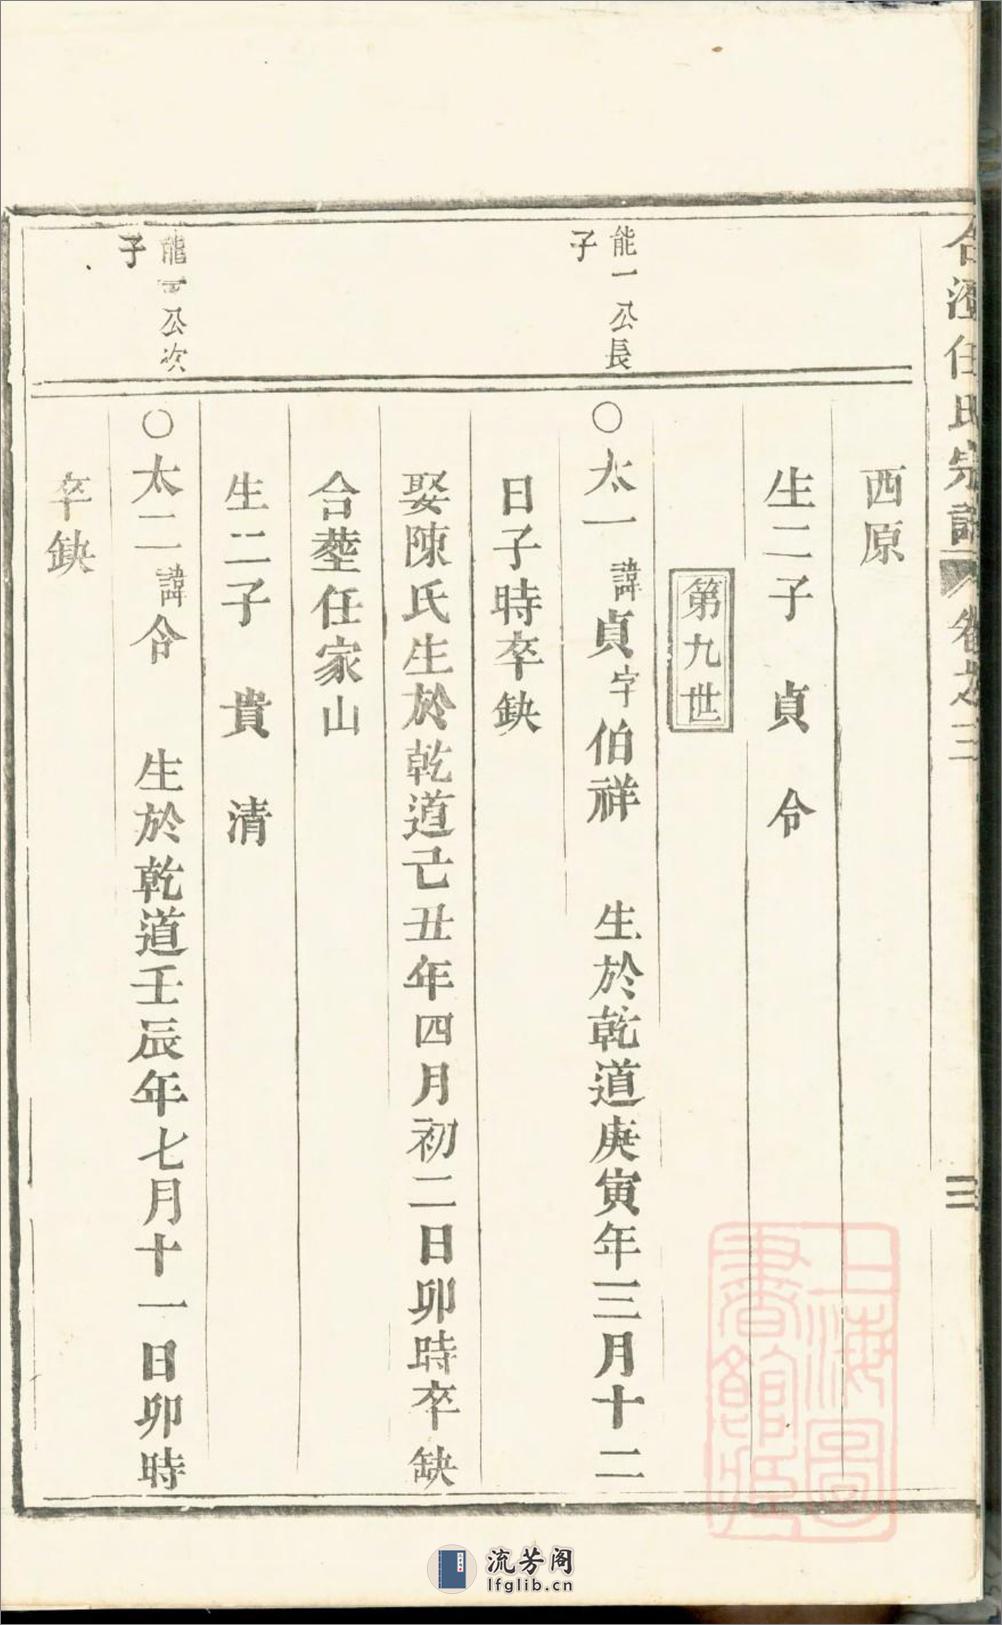 任氏宗譜 卷之三
三
西原
生二子 貞 令
第九世
能一公長
子
○太一諱貞字伯祥 生於乾道庚寅年三月十二
日子時卒缺
娶陳氏生於乾道己丑年四月初二日卯時卒缺
合塟任家山
生二子 貴 清
能一公次
子
○太二諱令 生於乾道壬辰年七月十一日卯時
卒缺
上海圖
書館藏
流芳阁
lfglib.cn